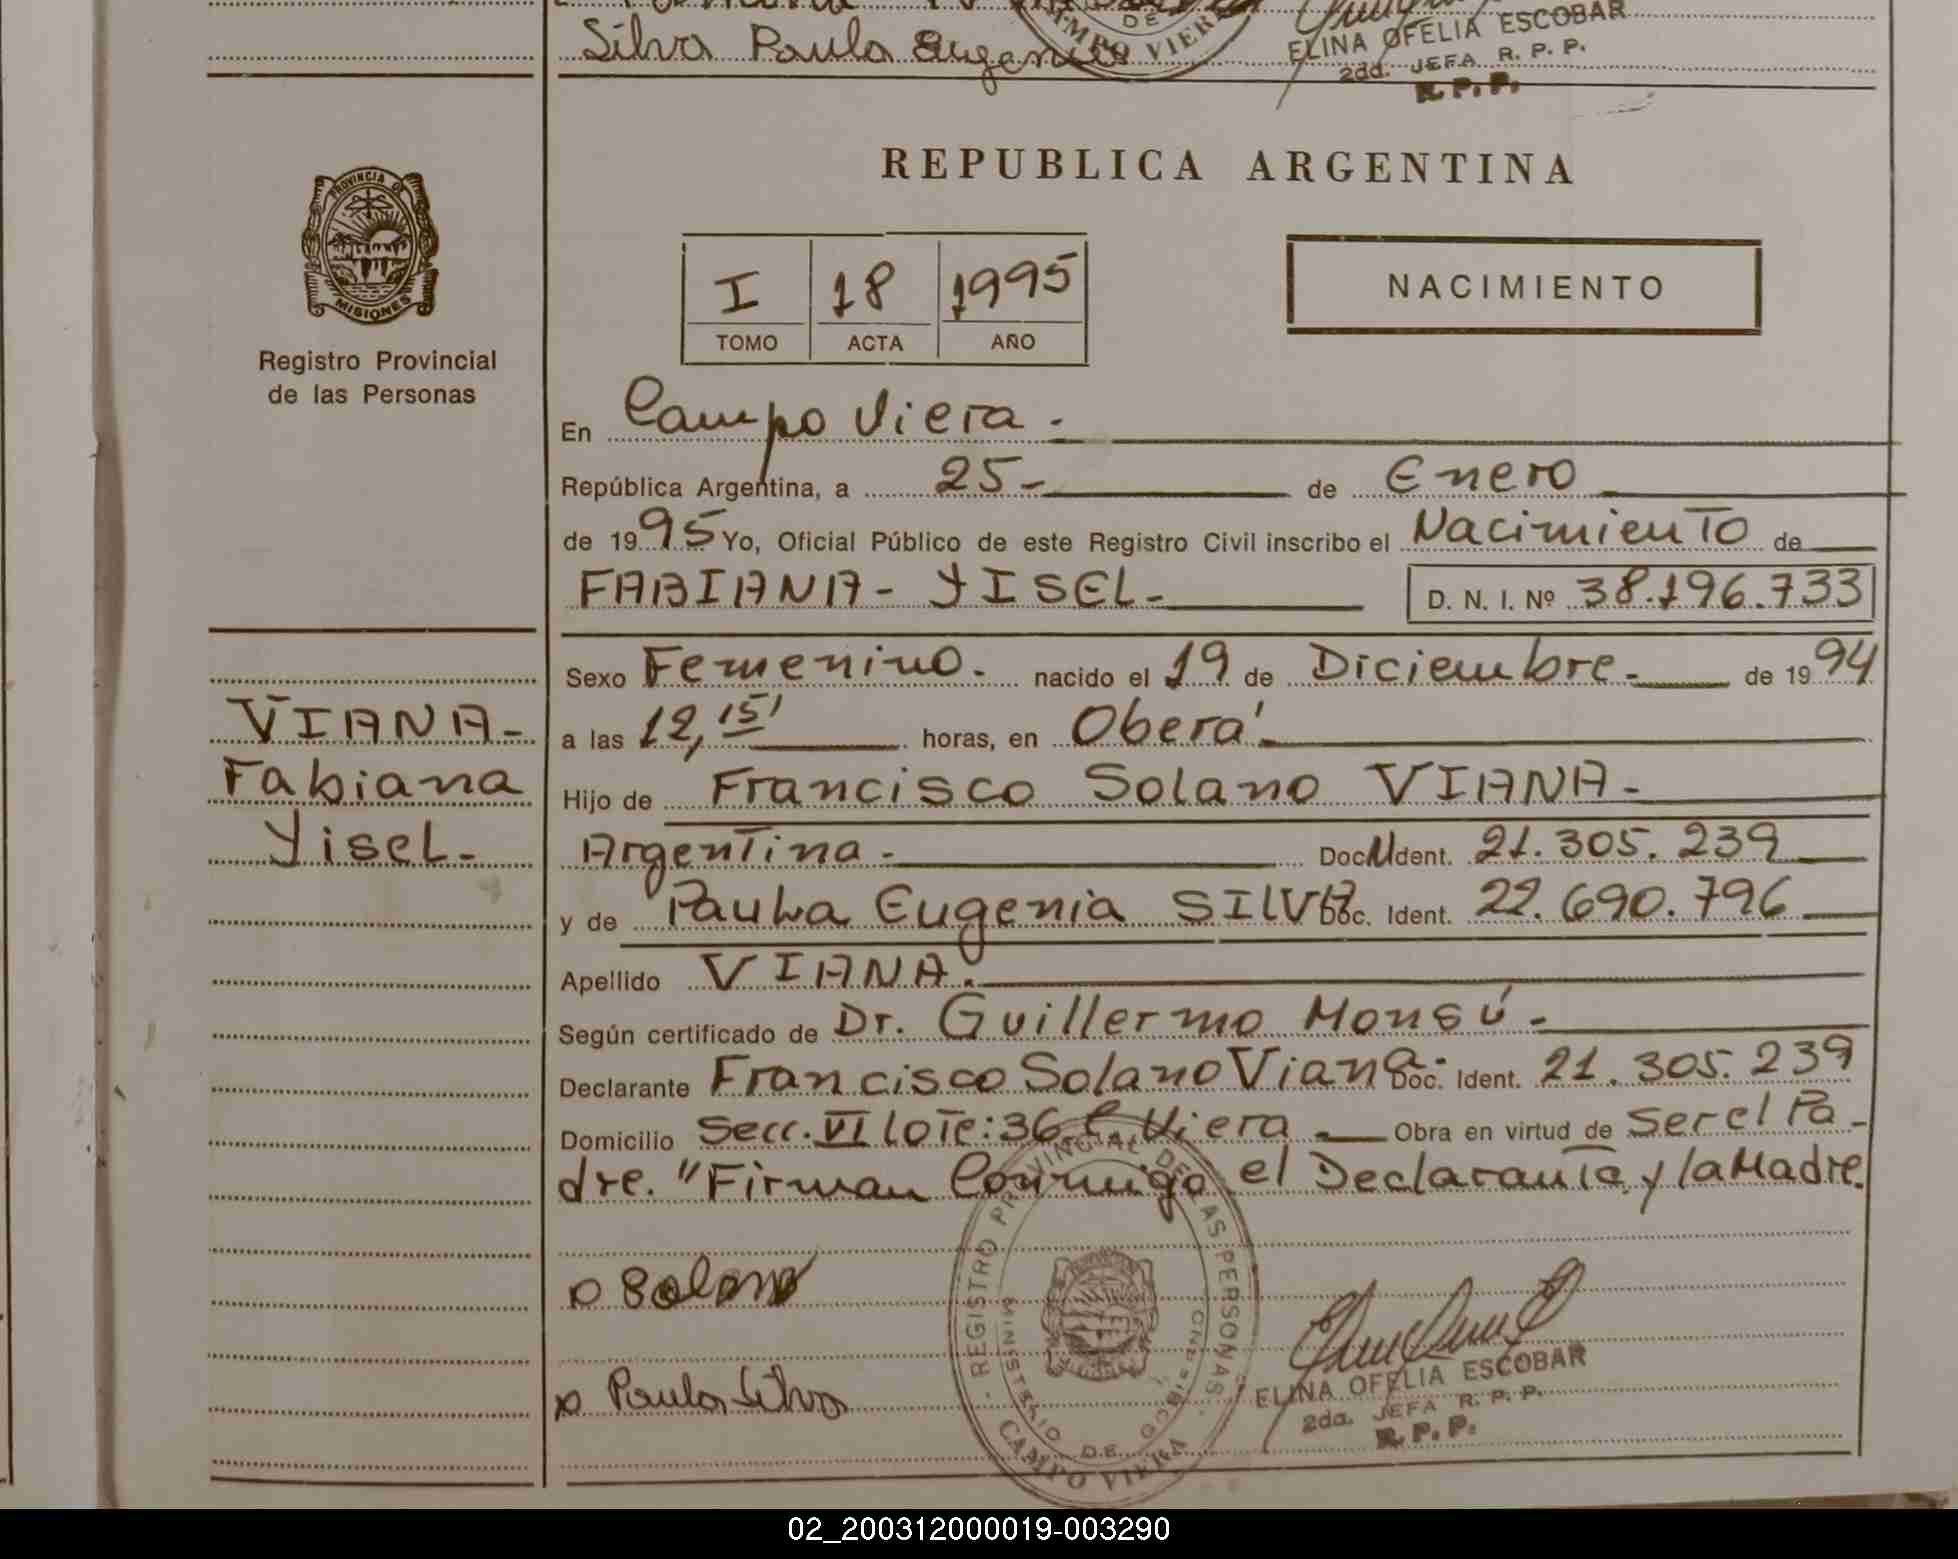 Silva Paula Eugenia
ELINA OFELIA ESCOBAR
2da. JEFA R. P. P.
R. P. P.
DE
CAMPO VIERA
PROVINCIA DE
MISIONES
Registro Provincial
de las Personas
REPUBLICA ARGENTINA
I 18 1995
TOMO ACTA AÑO
NACIMIENTO
En Campo Viera.
República Argentina, a 25- de Enero
de 1995 Yo, Oficial Público de este Registro Civil inscribo el Nacimiento de
FABIANA- YISEL- D. N. I. Nº 38.196.733
Sexo Femenino. nacido el 19 de Diciembre- de 1994
a las 12,15' horas, en Oberá.
Hijo de Francisco Solano VIANA-
Argentina- Doc. Ident. 21.305.239
y de Paula Eugenia SILVA Doc. Ident. 22.690.796
Apellido VIANA.
Según certificado de Dr. Guillermo Monsú-
Declarante Francisco Solano Viana- Doc. Ident. 21.305.239
Domicilio Secc. VI lote: 36 C. Viera- Obra en virtud de ser el Pa-
dre. "Firman Conmigo el Declarante y la Madre.
VIANA-
Fabiana
Yisel-
p Solano
p Paula Silva
REGISTRO PROVINCIAL DE LAS PERSONAS
MINISTERIO DE GOBIERNO
CAMPO VIERA
ELINA OFELIA ESCOBAR
2da. JEFA R. P. P.
R. P. P.
02_200312000019-003290